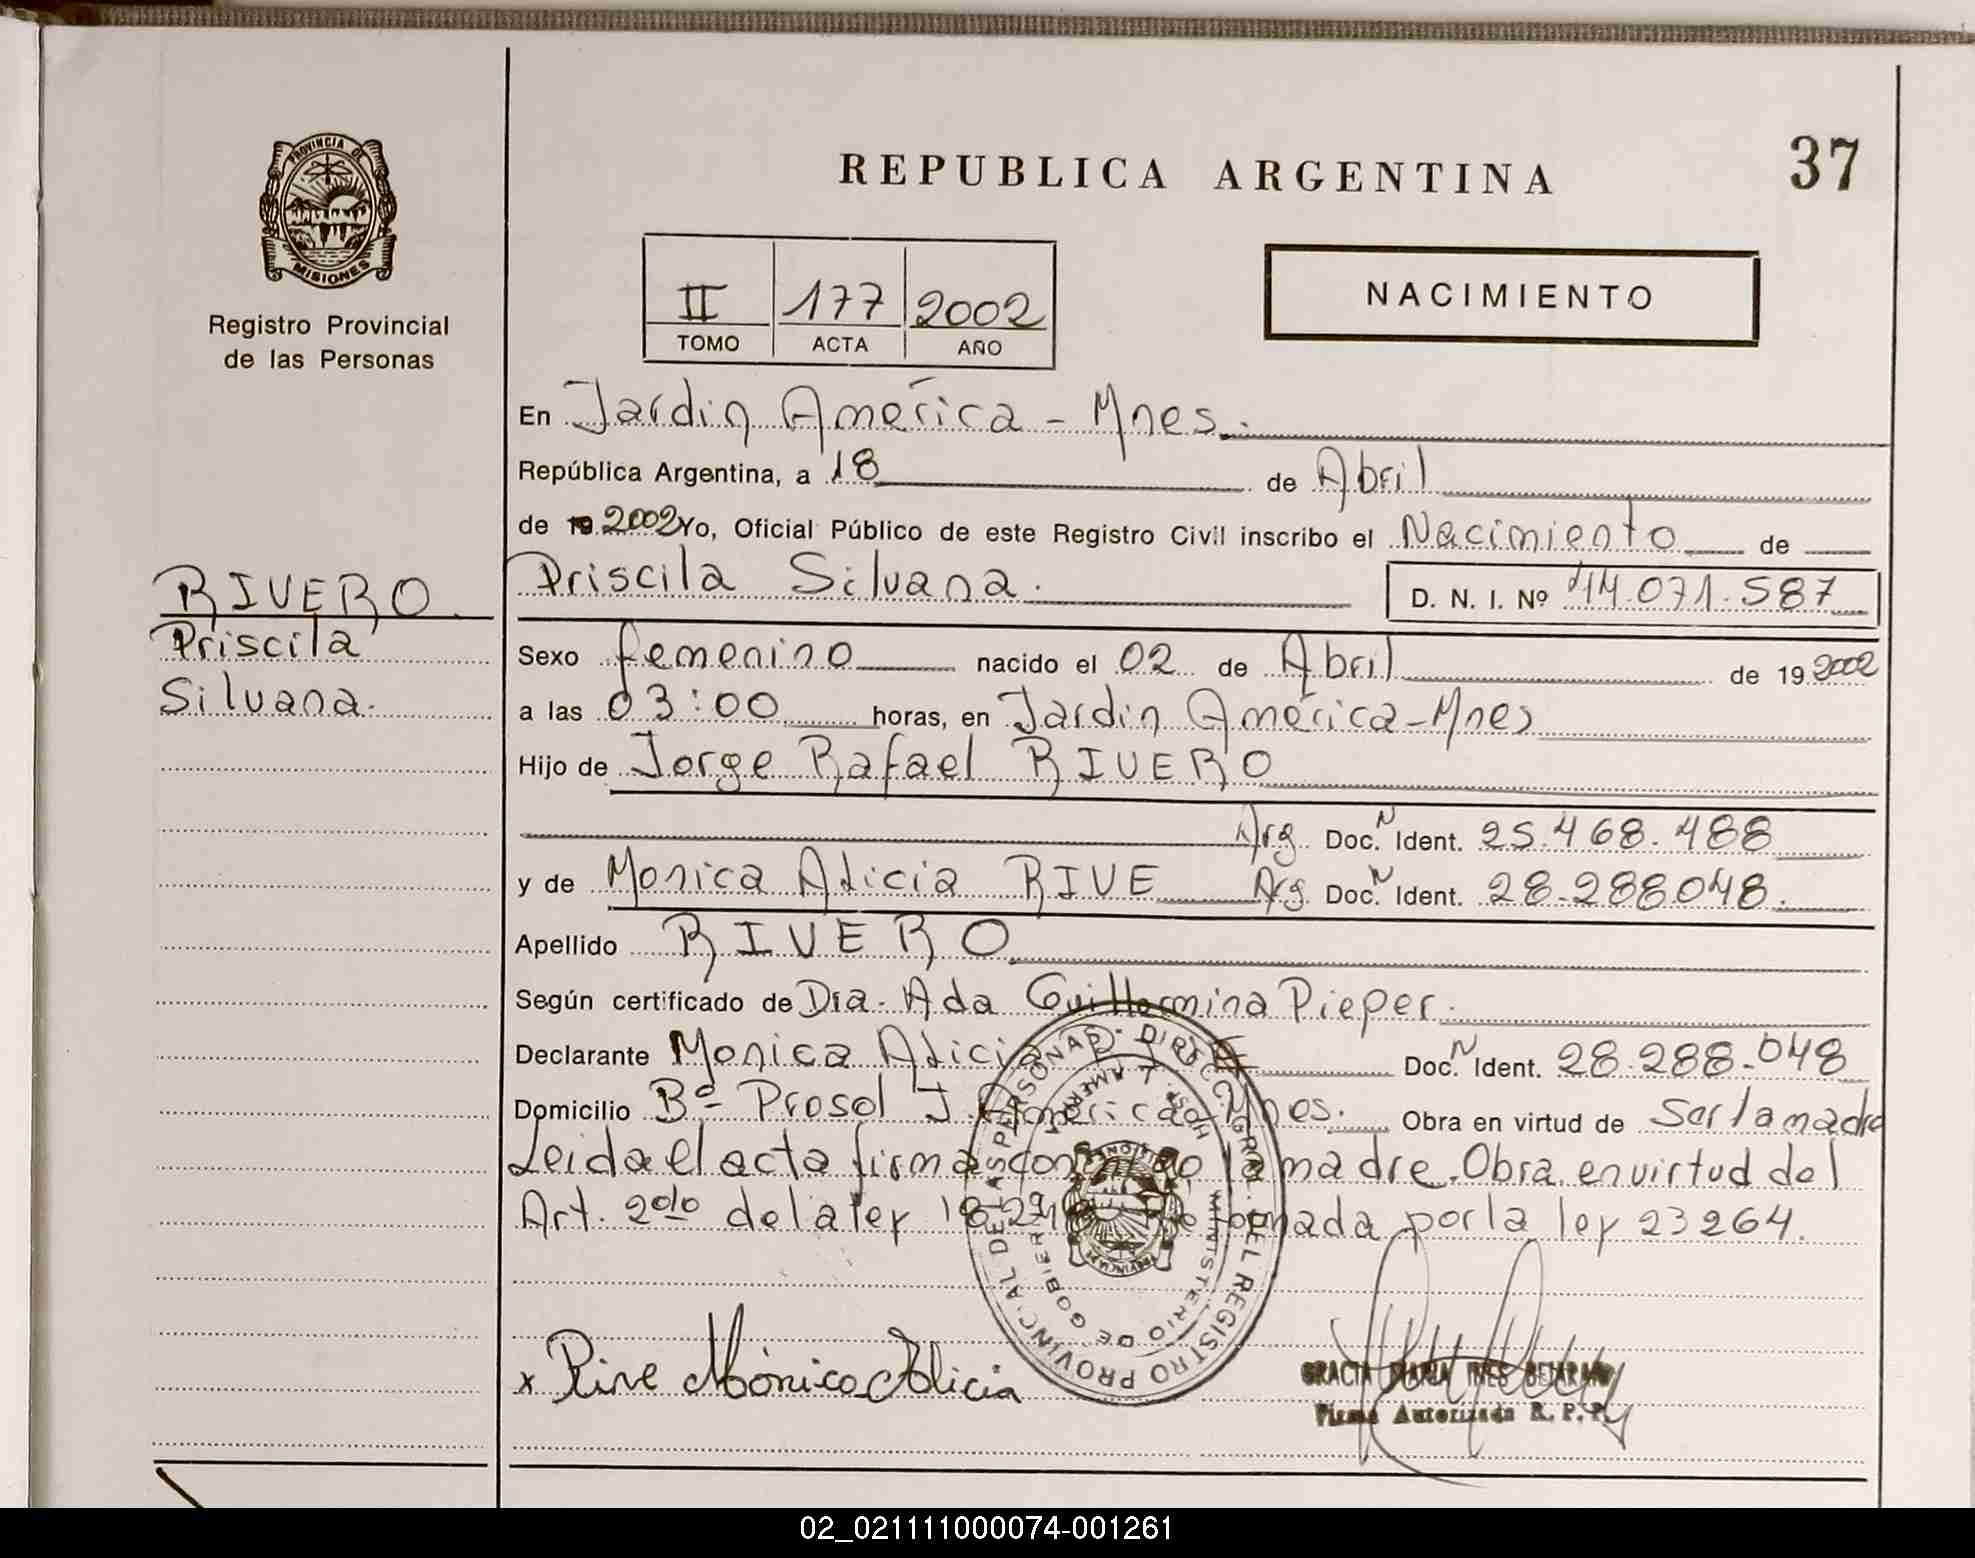 PROVINCIA DE
MISIONES
Registro Provincial
de las Personas
REPUBLICA ARGENTINA
37
II 177 2002
TOMO ACTA AÑO
NACIMIENTO
En Jardin América - Mnes.
República Argentina, a 18 de Abril
de 19 2002 Yo, Oficial Público de este Registro Civil inscribo el Nacimiento de
RIVERO
Priscila
Silvana.
Priscila Silvana. D. N. I. Nº 44.071.587
Sexo femenino nacido el 02 de Abril de 19 2002
a las 03:00 horas, en Jardin América - Mnes
Hijo de Jorge Rafael RIVERO
Arg. Doc. N Ident. 25.468.488
y de Monica Alicia RIVE Arg. Doc. N Ident. 28.288.048.
Apellido RIVERO
Según certificado de Dra. Ada Guillermina Pieper.
Declarante Monica Alicia Doc. N Ident. 28.288.048
Domicilio Bº Prosol J. América - Mnes. Obra en virtud de Ser la madre
Leida el acta firma conmigo la madre. Obra en virtud del
Art. 2do de la ley 18.248 por la ley 23264.
x Rive Mónica Alicia
DIRECC. GRAL. DEL REGISTRO PROVINCIAL DE LAS PERSONAS
MINISTERIO DE GOBIERNO
J. AMERICA
GRACIA MARIA INES BEJARANO
Firma Autorizada R. P. P.
02_021111000074-001261